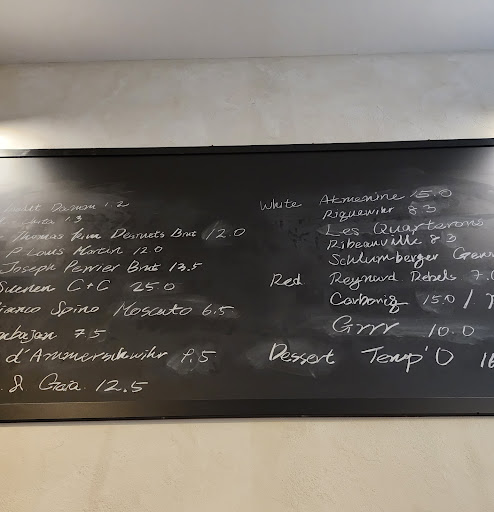 1.2
1.3
Thomas Brut 12.0
P Louis Martin 12.0
Joseph Perrier Brut 13.5
C + C 25.0
Bianco Spino Moscato 6.5
7.5
d'Ammerschwihr 9.5
& Gaia 12.5
White Akmenine 15.0
Riquewihr 8.3
Les Quarterons
Ribeauville 8.3
Schlumberger
Red Reynard Rebels 7.0
Carboniq 15.0 /
Grrr 10.0
Dessert Temp'O